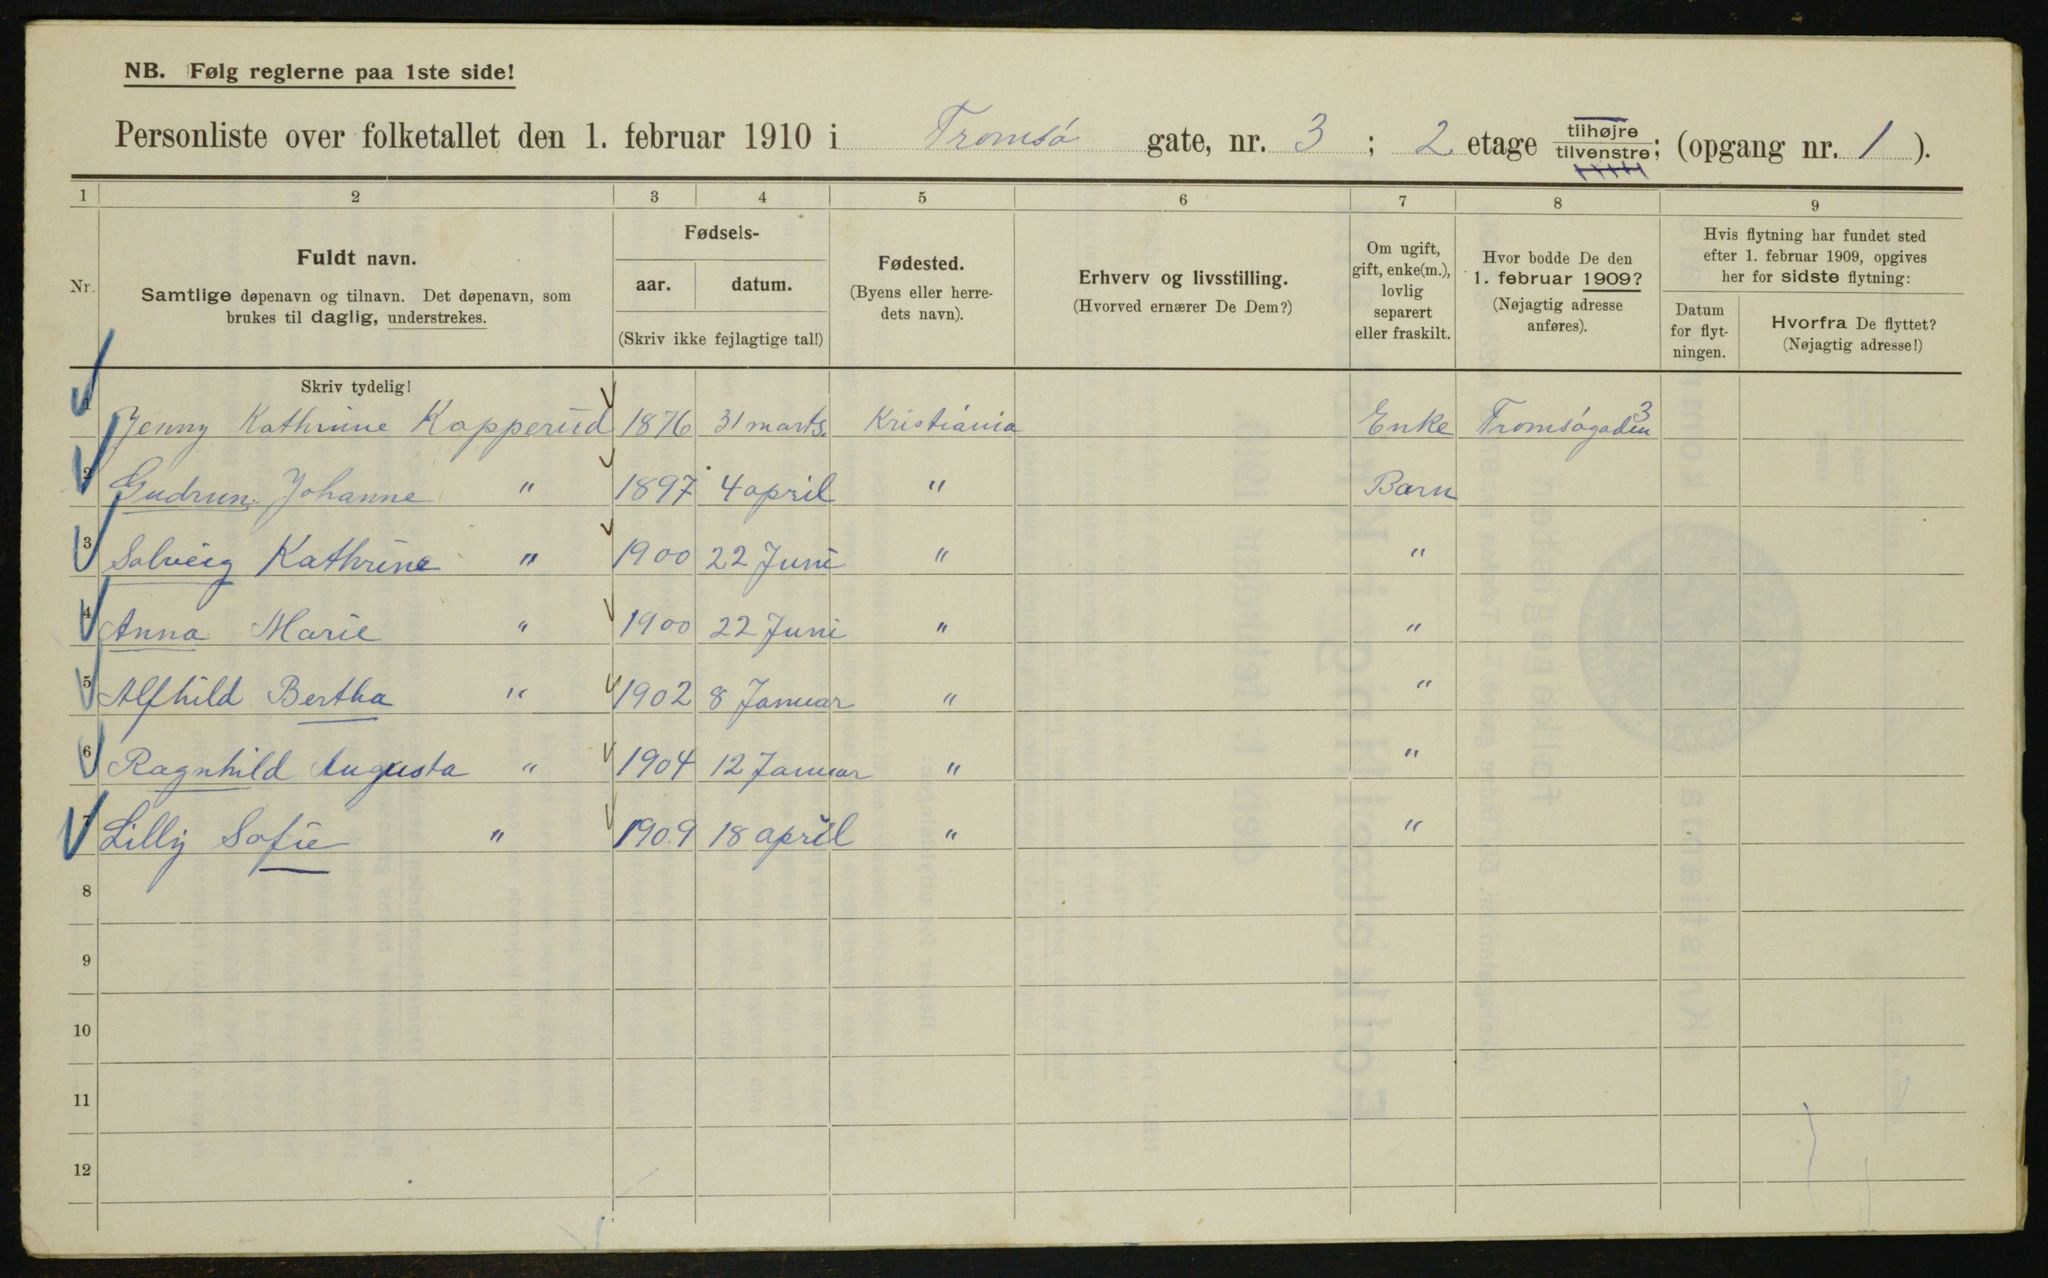 NB. Følg reglerne paa 1ste side!
Personliste over folketallet den 1. februar 1910 i Tromsø gate, nr. 3 ; 2 etage tilhøjre tilvenstre; (opgang nr. 1 ).
1 2 3 4 5 6 7 8 9
Nr.
Fuldt navn.
Samtlige døpenavn og tilnavn. Det døpenavn, som
brukes til daglig, understrekes.
Fødsels-
aar. datum.
(Skriv ikke fejlagtige tal!)
Fødested.
(Byens eller herre-
dets navn).
Erhverv og livsstilling.
(Hvorved ernærer De Dem?)
Om ugift,
gift, enke(m.),
lovlig
separert
eller fraskilt.
Hvor bodde De den
1. februar 1909?
(Nøjagtig adresse
anføres).
Hvis flytning har fundet sted
efter 1. februar 1909, opgives
her for sidste flytning:
Datum
for flyt-
ningen.
Hvorfra De flyttet?
(Nøjagtig adresse!)
Skriv tydelig!
1 Jenny Kathrine Kopperud 1876 31 marts. Kristiania Enke Tromsøgaden 3
2 Gudrun Johanne " 1897 4 april " Barn
3 Solveig Kathrine " 1900 22 Juni " "
4 Anna Marie " 1900 22 Juni " "
5 Alfhild Bertha " 1902 8 Januar " "
6 Ragnhild Augusta " 1904 12 Januar " "
7 Lilly Sofie " 1909 18 april " "
8
9
10
11
12